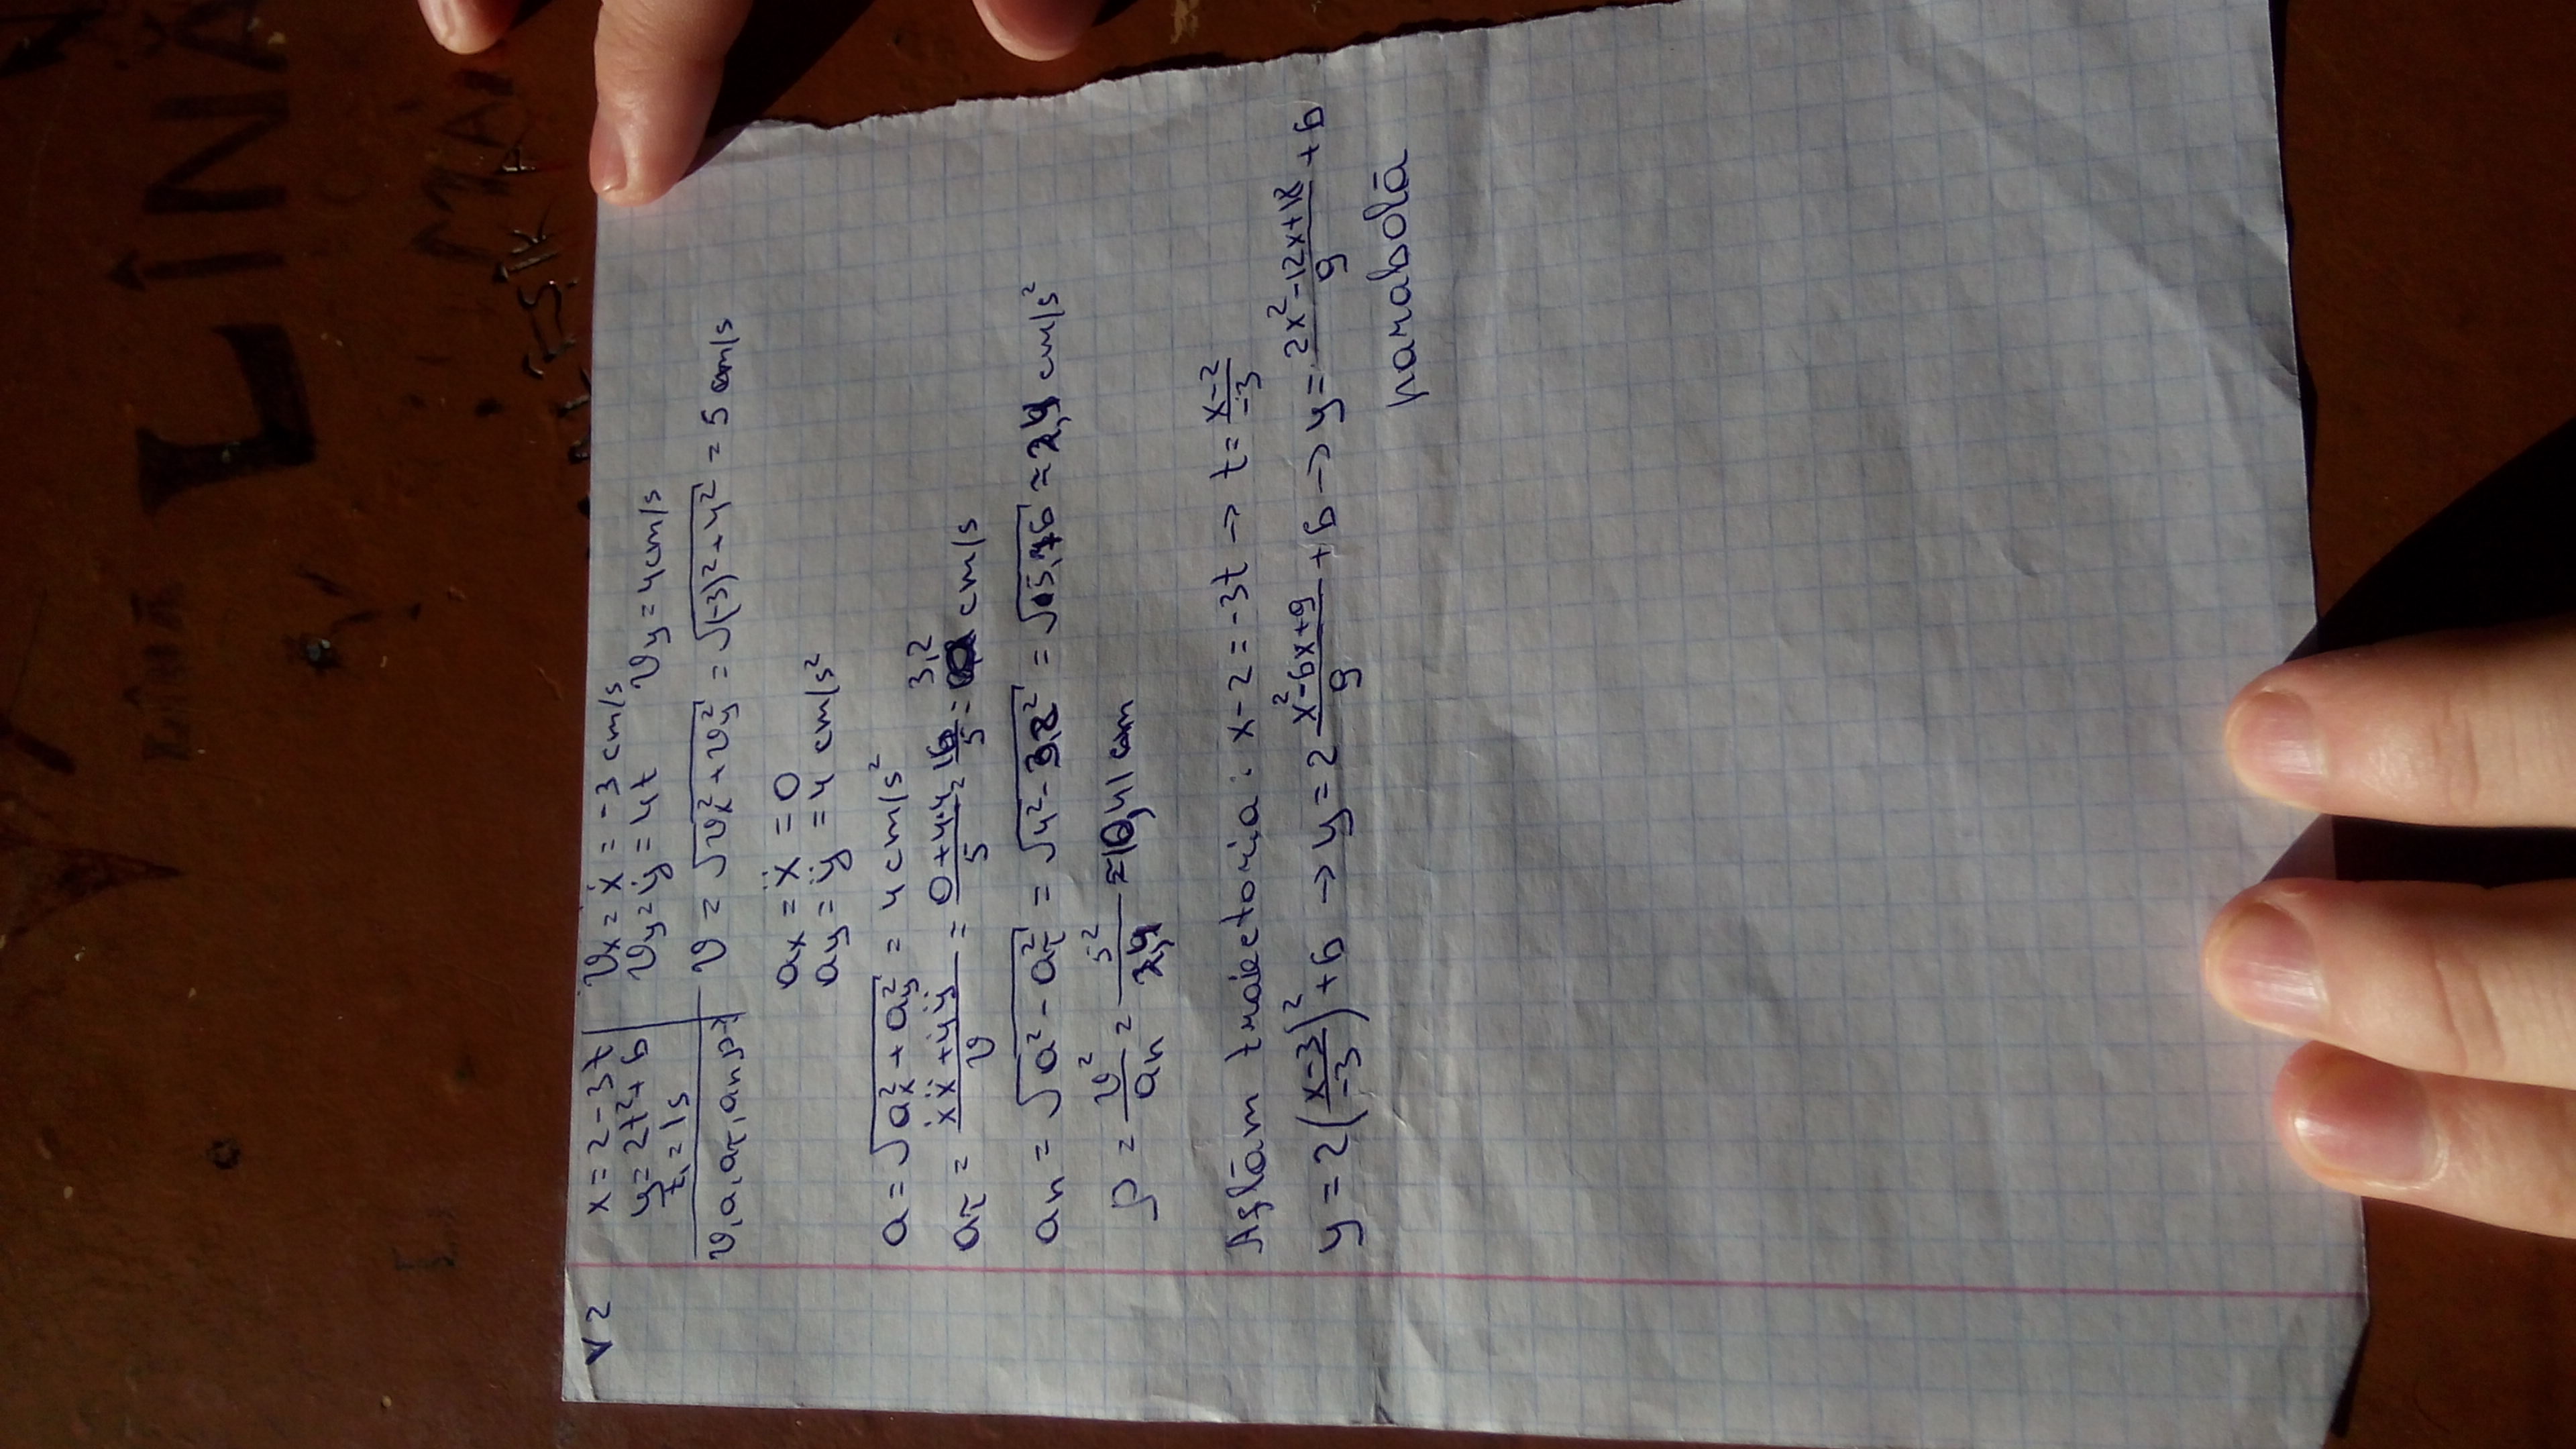 V2
x = 2 - 3t
y = 2t² + 6
t₁ = 1s
v, a, aτ, an, ρ - ?
vx = ẋ = -3 cm/s
vy = ẏ = 4t vy = 4 cm/s
v = √(vx² + vy²) = √((-3)² + 4²) = 5 cm/s
ax = ẍ = 0
ay = ÿ = 4 cm/s²
a = √(ax² + ay²) = 4 cm/s²
aτ = (ẋẍ + ẏÿ)/v = (0 + 4·4)/5 = 16/5 = 3,2 cm/s
an = √(a² - aτ²) = √(4² - 3,2²) = √5,76 ≈ 2,4 cm/s²
ρ = v²/an = 5²/2,4 ≈ 10,41 cm
Aflăm traiectoria: x - 2 = -3t → t = (x-2)/-3
y = 2((x-3)/-3)² + 6 → y = 2 (x² - 6x + 9)/9 + 6 → y = (2x² - 12x + 18)/9 + 6
parabolă
LINA